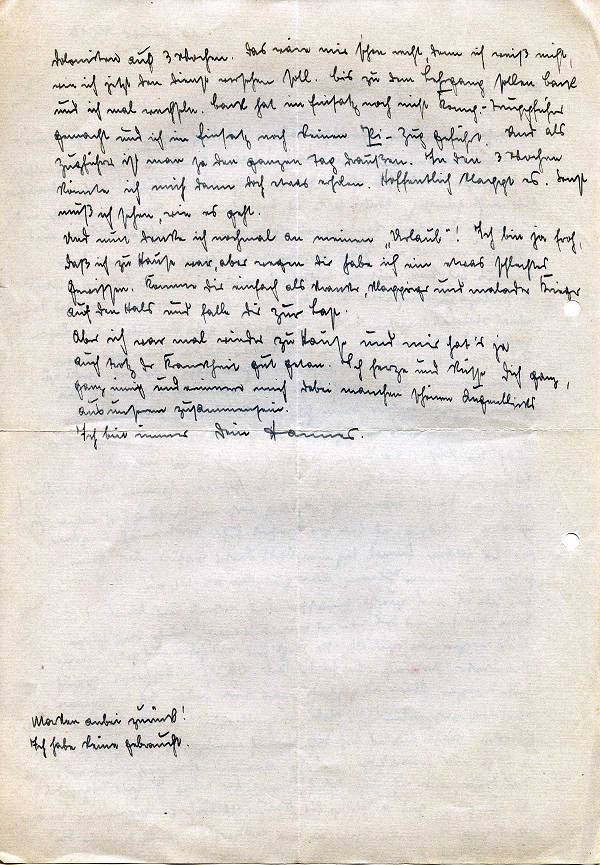 Dolomiten auf 3 Wochen. Das wäre mir schon recht, denn ich weiß nicht,
wo ich jetzt den Dienst versehen soll. Bis zu dem Lehrgang sollen
und ich mal wechseln. hat im Einsatz noch nicht Komp.-Truppführer
gemacht und ich im Einsatz noch keinen Pi-Zug geführt. Und als
Zugführer ist man ja den ganzen Tag draußen. In den 3 Wochen
könnte ich mich dann doch etwas erholen. Hoffentlich klappt es. Sonst
muß ich sehen, wie es geht.
Und nun denke ich nochmal an meinen „Urlaub"! Ich bin ja froh,
daß ich zu Hause war, aber wegen dir habe ich ein etwas schlechtes
Gewissen. Komme dir einfach als kranker, klappriger und maroder Krieger
auf den Hals und falle dir zur Last.
Aber ich war mal wieder zu Hause und mir hat's ja
auch trotz der Krankheit gut getan. Ich herze und küsse Dich ganz,
ganz innig und erinnere mich dabei manchen schönen Augenblicks
aus unserem Zusammensein.
Ich bin immer Dein Hannes.
Marken anbei zurück!
Ich habe keine gebraucht.